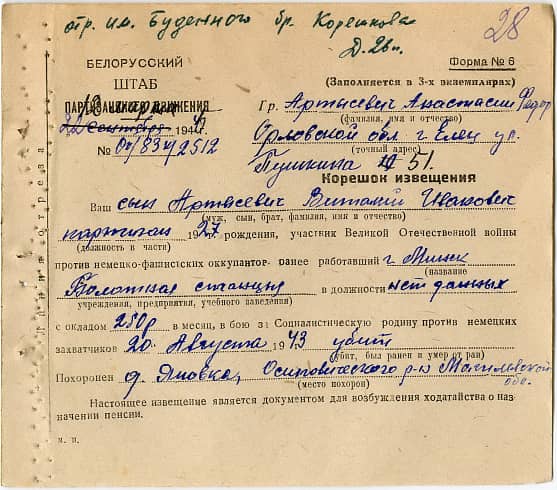 отр. им. Буденного бр. Корешкова
28
БЕЛОРУССКИЙ
ШТАБ
ПАРТИЗАНСКОГО ДВИЖЕНИЯ
Форма № 6
(Заполняется в 3-х экземплярах)
Гр. Артысевич Анастасии Федор
(фамилия, имя и отчество)
22 сентября 1944 г.
Орловской обл г. Елец ул.
(точный адрес)
№
Пушкина 51.
Корешок извещения
Ваш сын Артысевич Виталий Иванович
(муж, сын, брат, фамилия, имя и отчество)
партизан 1927 рождения, участник Великой Отечественной войны
(должность в части)
против немецко-фашистских оккупантов ранее работавший г. Минск
(название
Болотная станция в должности нет данных
учреждения, предприятия, учебного заведения)
с окладом 250р в месяц, в бою за Социалистическую родину против немецких
захватчиков 20 Августа 1943 убит
(убит, был ранен и умер от ран)
Похоронен д. Яновка, Осиповического р-н Могилевской обл.
(место похорон)
Настоящее извещение является документом для возбуждения ходатайства о наз-
начении пенсии.
м. п.